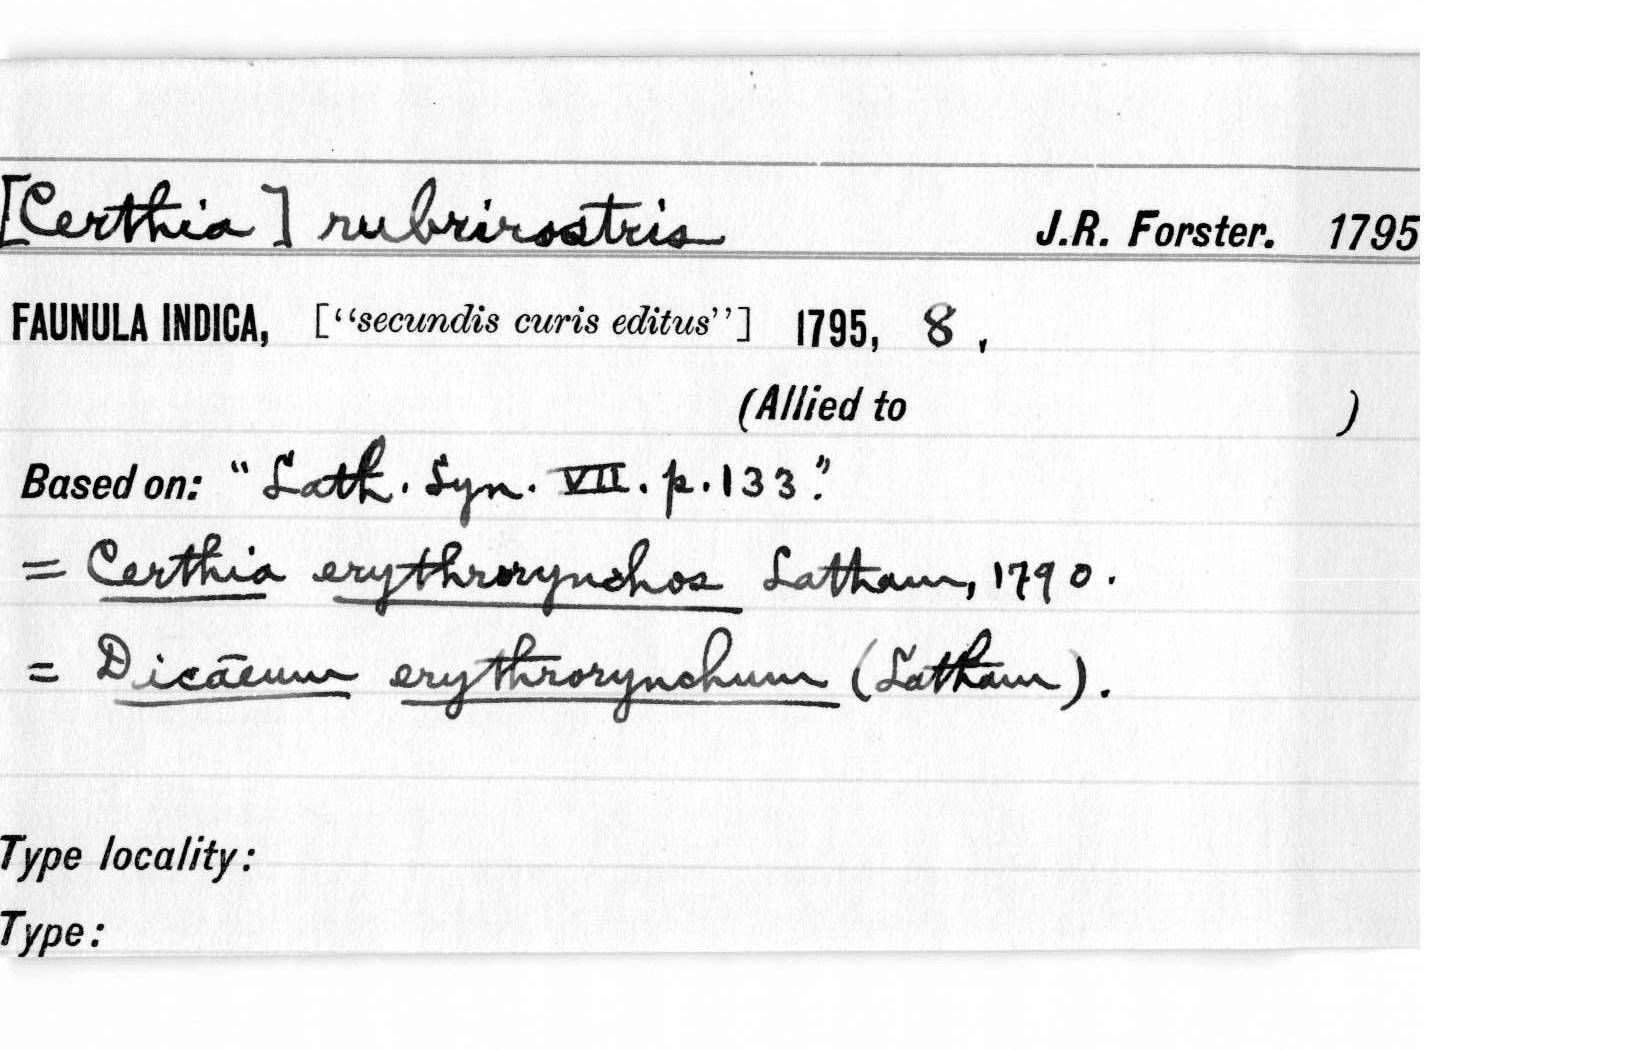 [Certhia] rubrirostris J.R. Forster. 1795
FAUNULA INDICA, ["secundis curis editus"] 1795, 8,
(Allied to )
Based on: "Lath. Syn. VII. p. 133."
= Certhia erythrorynchos Latham, 1790.
= Dicaeum erythrorynchum (Latham).
Type locality:
Type: